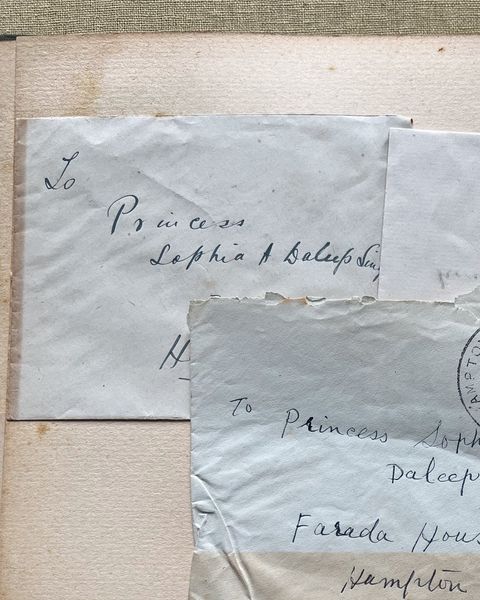 To
Princess
Sophia A Daleep Sing
H
To
Princess Soph
Daleep
Farada Hous
Hampton
AMPTO